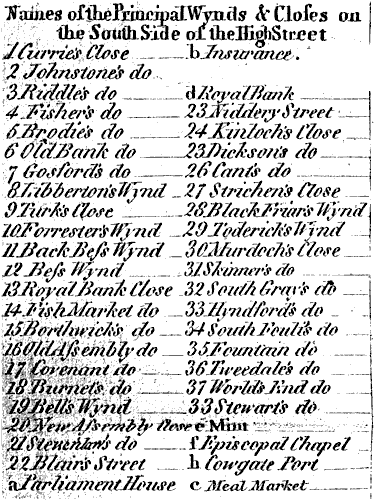 Names of the Principal Wynds & Closes on
the South Side of the High Street
1 Currie's Close
2 Johnstone's do
3 Riddle's do
4 Fisher's do
5 Brodie's do
6 Old Bank do
7 Gosford's do
8 Libberton's Wynd
9 Turk's Close
10 Forrester's Wynd
11 Back Bess Wynd
12 Bess Wynd
13 Royal Bank Close
14 Fish Market do
15 Borthwick's do
16 Old Assembly do
17 Covenant do
18 Burnet's do
19 Bell's Wynd
20 New Assembly Close
21 Stevenlaw's do
22 Blair's Street
a Parliament House
b Insurance.
d Royal Bank
23 Niddery Street
24 Kinloch's Close
23 Dickson's do
26 Cant's do
27 Strichen's Close
28 Black Friar's Wynd
29 Toderick's Wynd
30 Murdoch's Close
31 Skinner's do
32 South Gray's do
33 Hyndford's do
34 South Foulis do
35 Fountain do
36 Tweedale's do
37 World's End do
33 Stewart's do
e Mint
f Episcopal Chapel
h Cowgate Port
c Meal Market